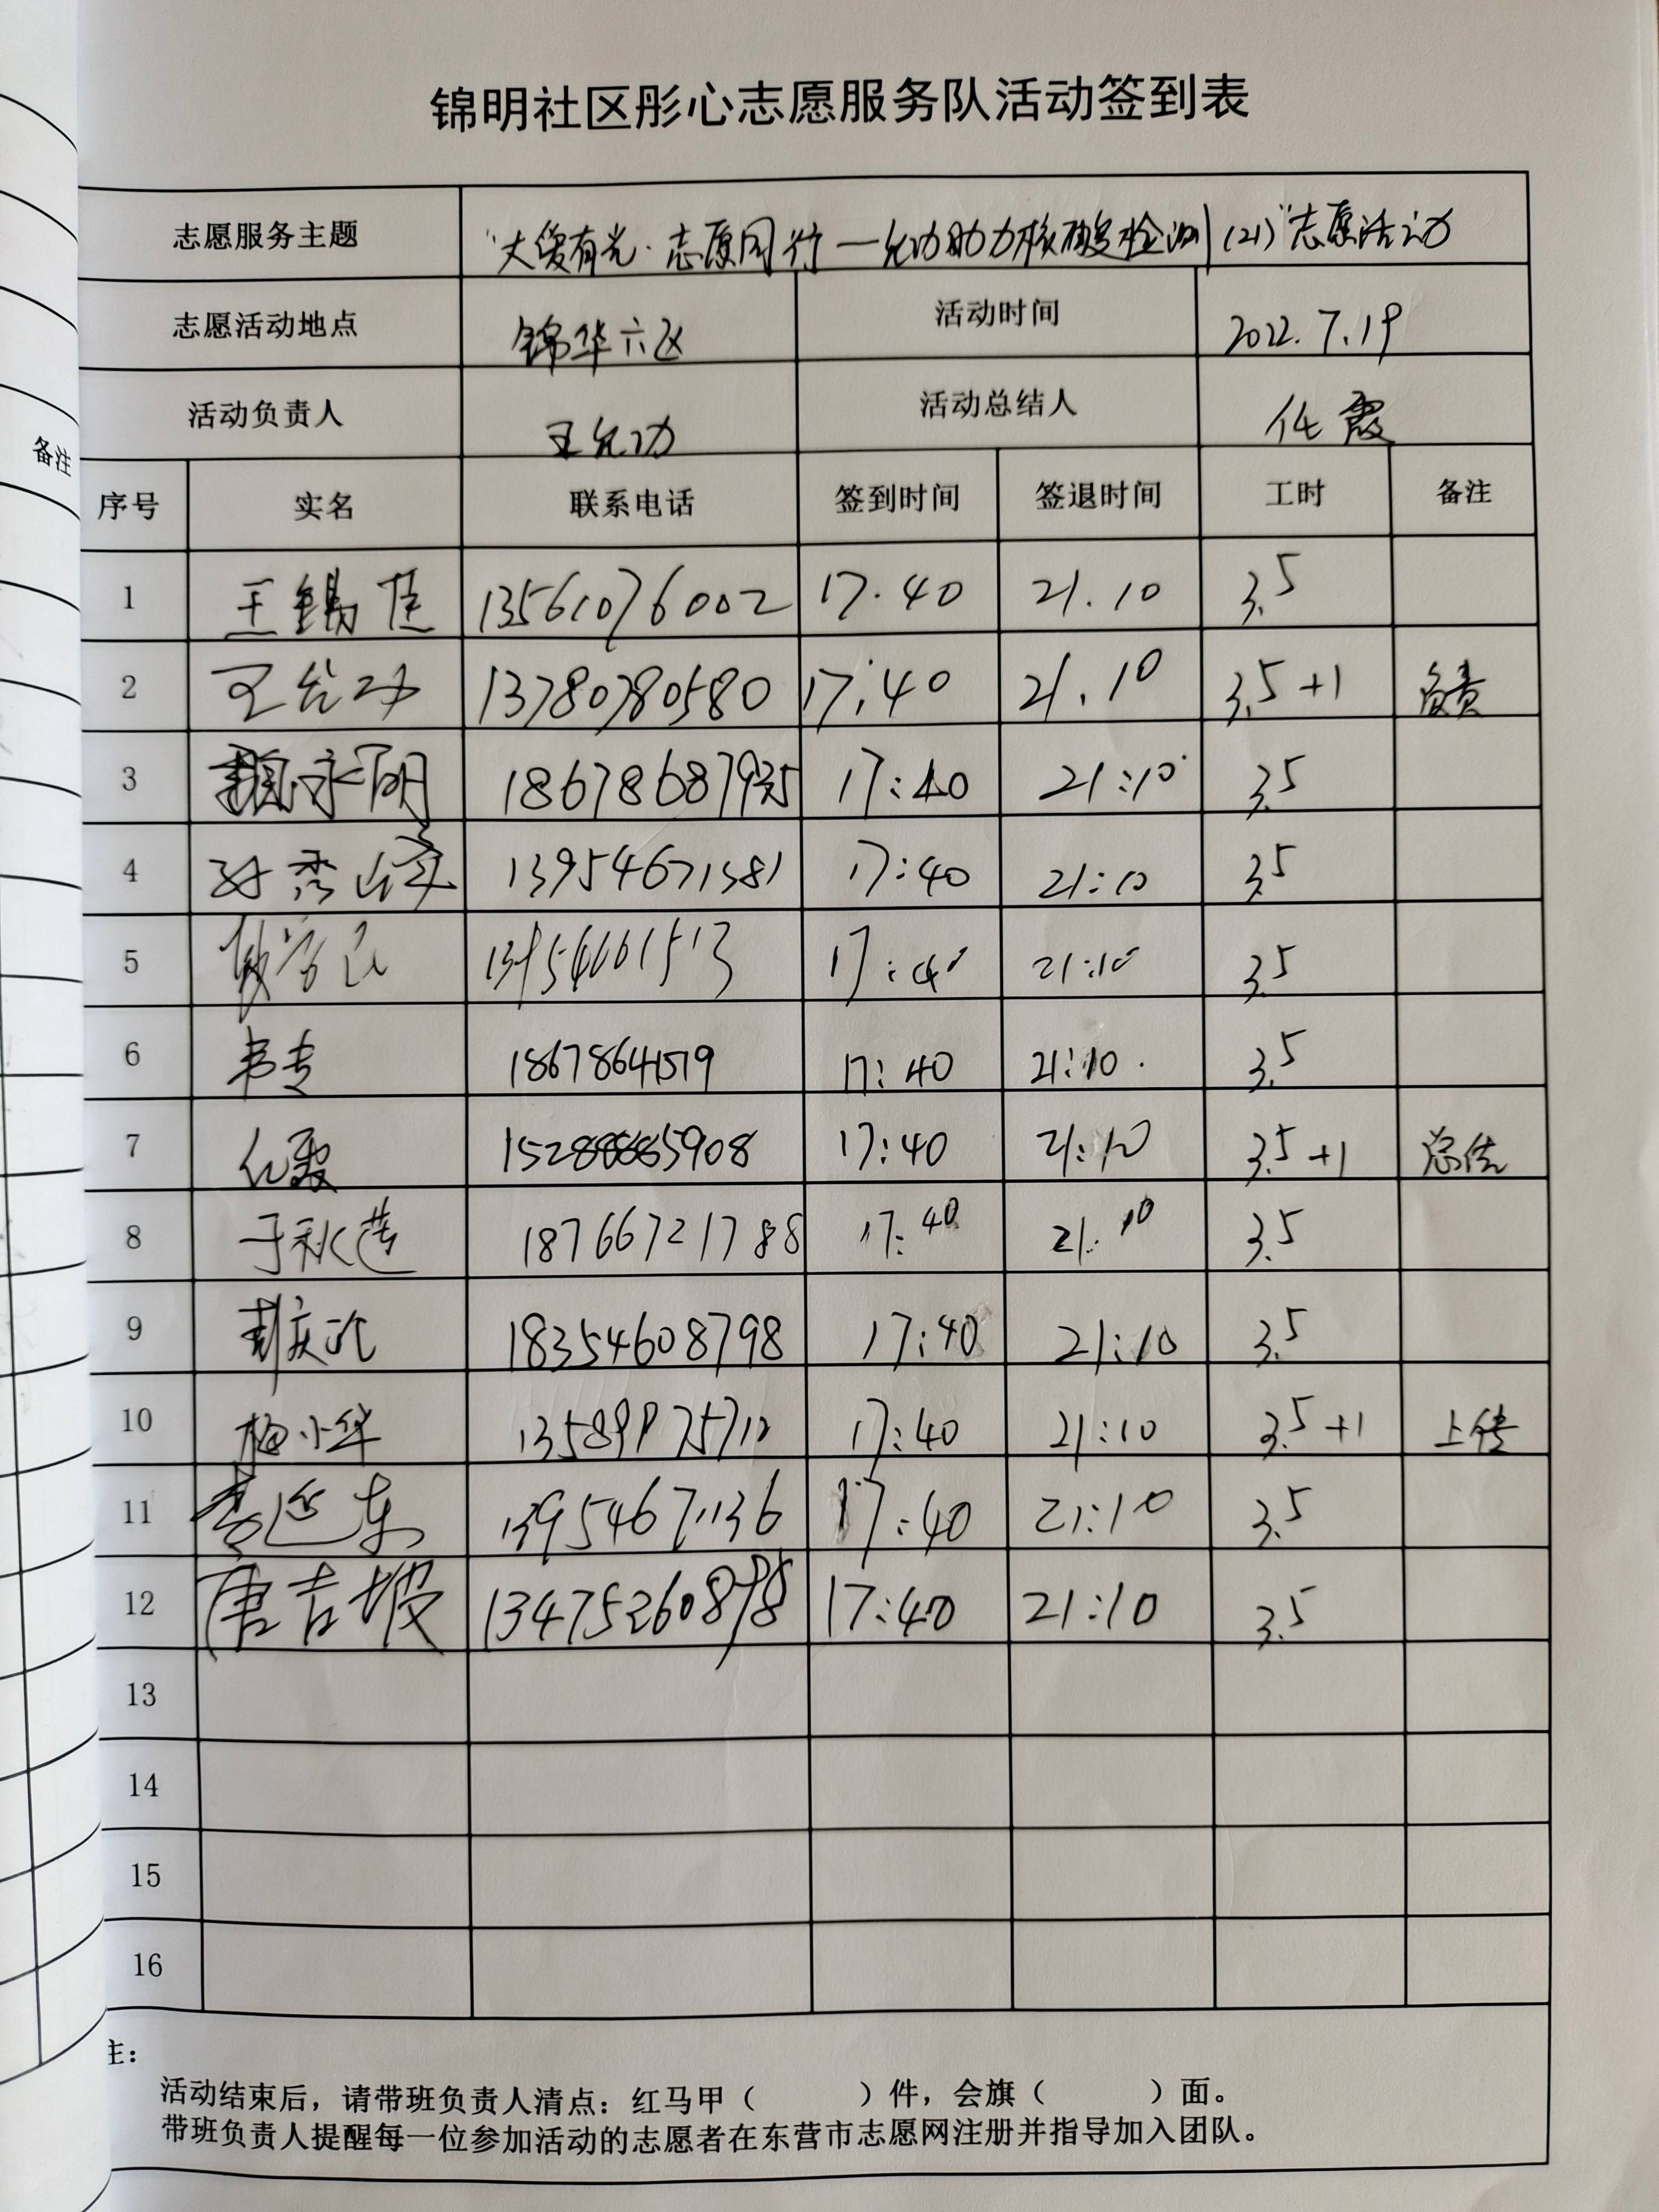 锦明社区彤心志愿服务队活动签到表
志愿服务主题 "大爱有光·志愿同行—允功助力核酸检测(21)"志愿活动
志愿活动地点 锦华六区 活动时间 2022.7.19
活动负责人 王允功 活动总结人 任霞
备注
序号 实名 联系电话 签到时间 签退时间 工时 备注
1 王锡佳 13561076002 17.40 21.10 3.5
2 王允功 13780780580 17:40 21.10 3.5+1 负责
3 18678687935 17:40 21:10 3.5
4 孙秀峰 13954671381 17:40 21:10 3.5
5 13954661513 17:40 21:10 3.5
6 18678641519 17:40 21:10 3.5
7 任霞 17:40 21:10 3.5+1 总结
8 于秋莲 18766721788 17:40 21:10 3.5
9 18354608798 17:40 21:10 3.5
10 梅小华 13589975712 17:40 21:10 3.5+1 上传
11 李延东 13954671136 17:40 21:10 3.5
12 唐吉坡 13475260898 17:40 21:10 3.5
13
14
15
16
主：
活动结束后，请带班负责人清点：红马甲（ ）件，会旗（ ）面。
带班负责人提醒每一位参加活动的志愿者在东营市志愿网注册并指导加入团队。